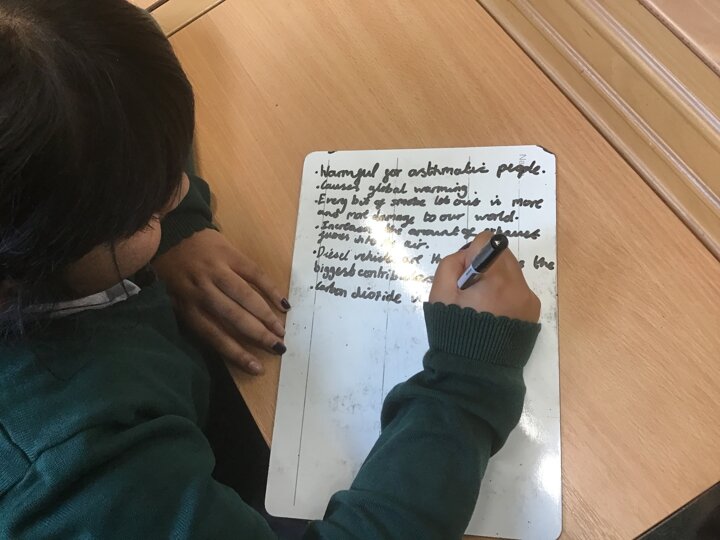 · Harmful for asthmatic people.
· Causes global warming.
· Every bit of smoke let out is more
and mor damage to our world.
· Increases the amount of
into air.
· Diesel vehicles are the the
biggest
· Carbon dioxide